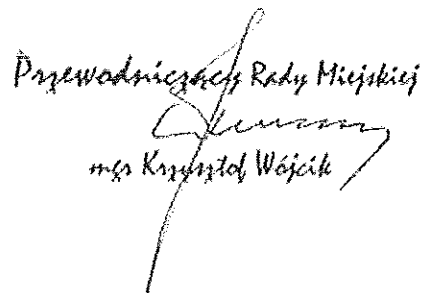 Przewodniczący Rady Miejskiej
mgr Krzysztof Wójcik